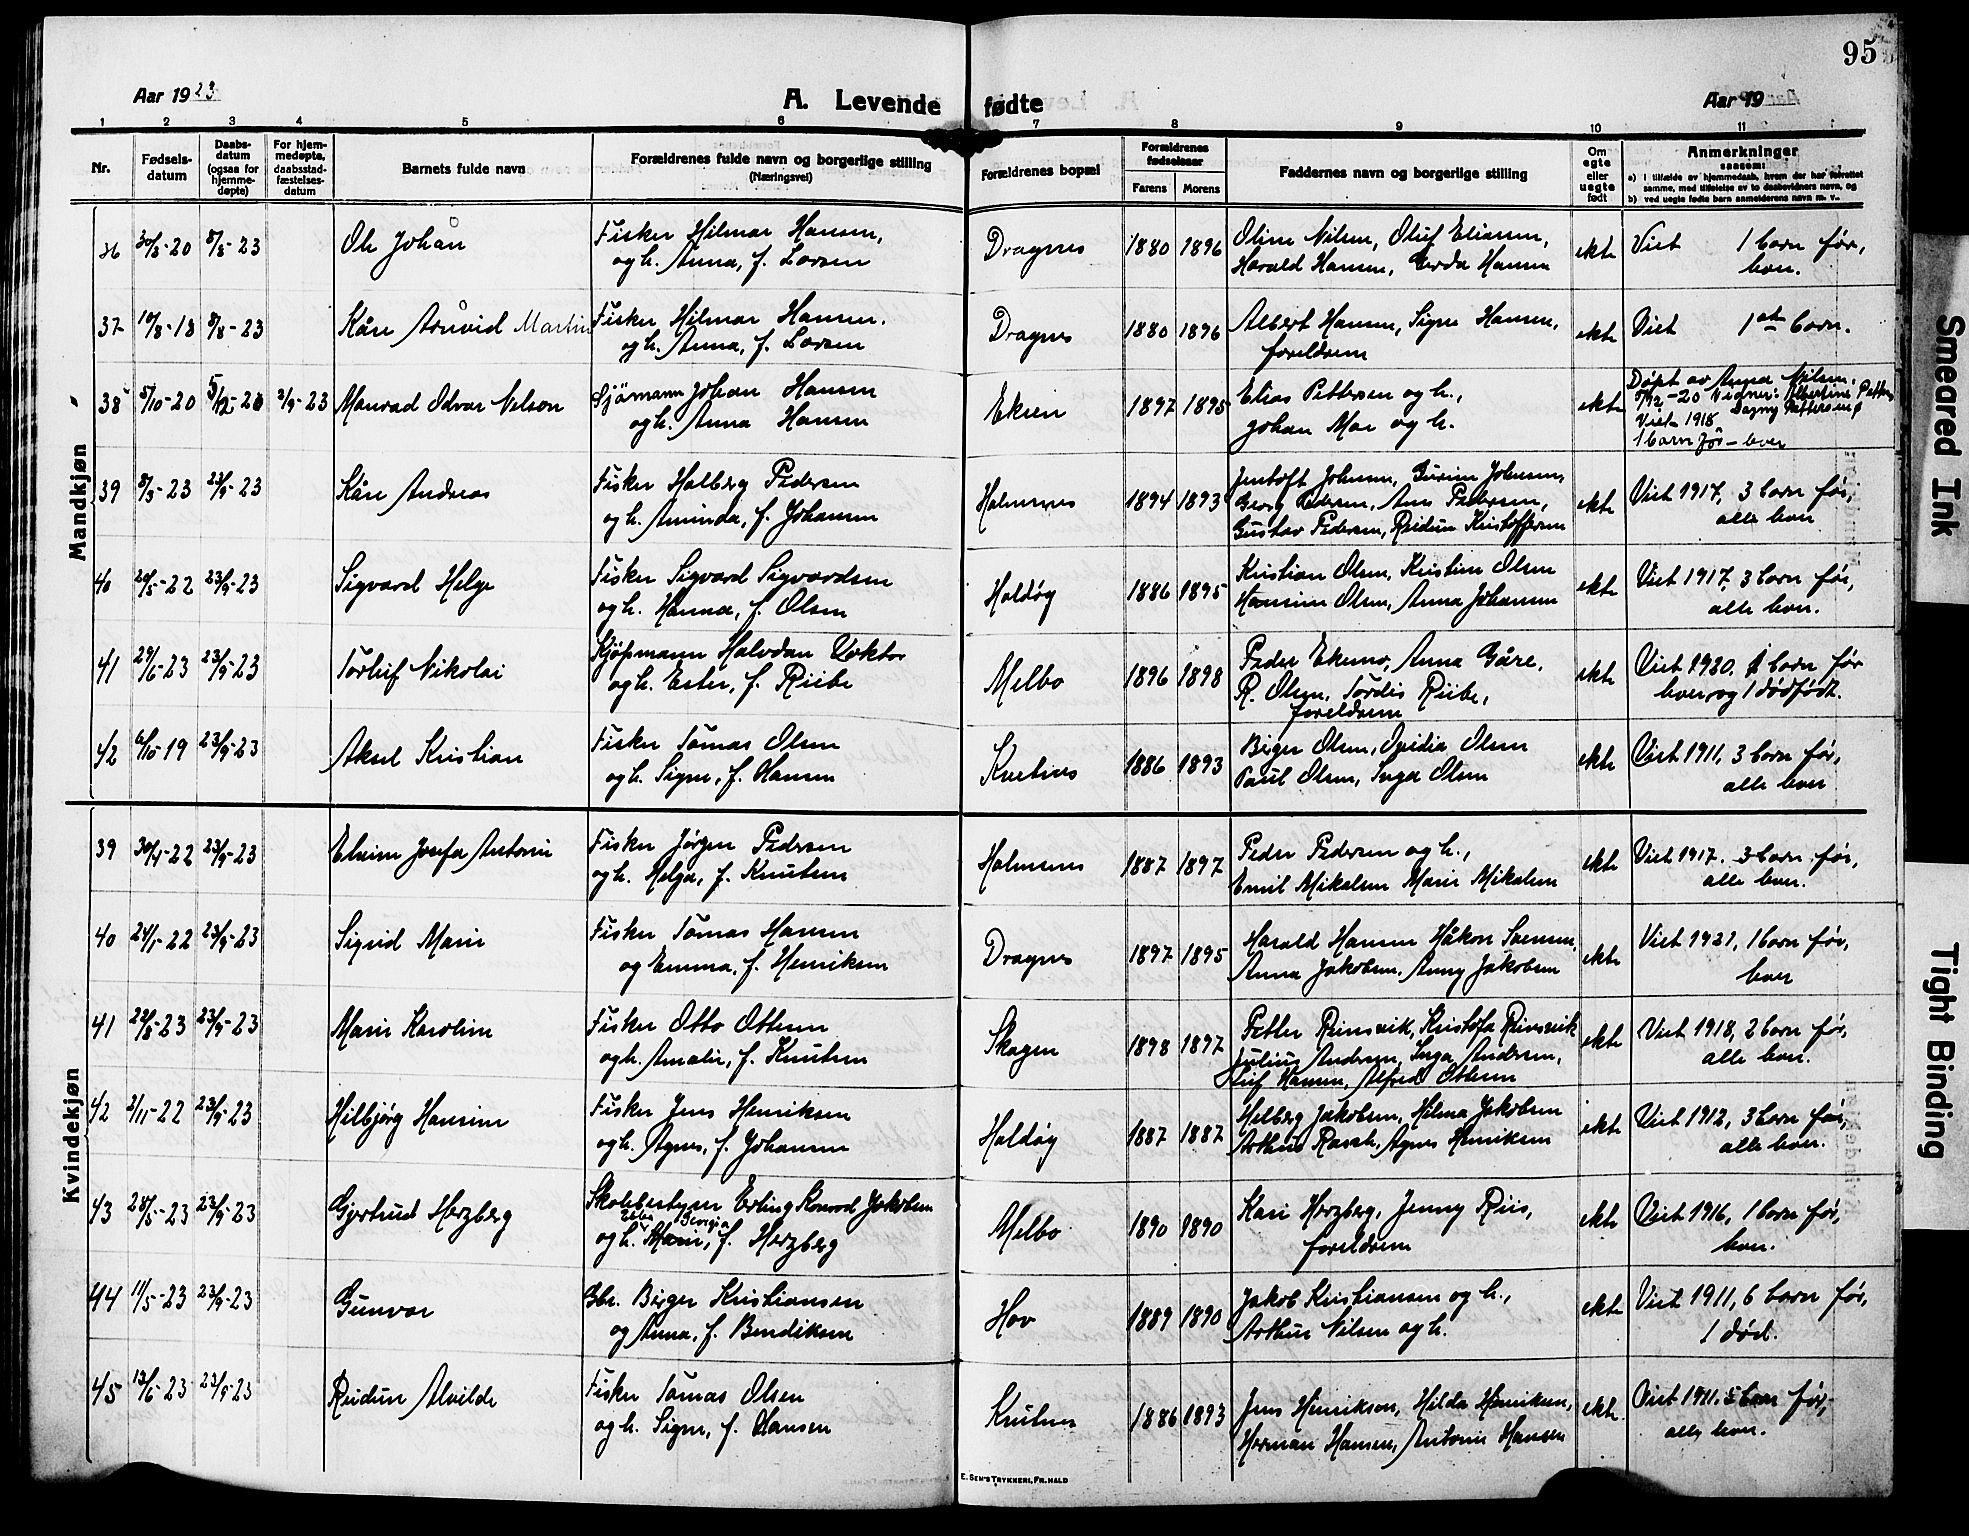 95
Aar 1923
A. Levende fødte
Aar 19
1 2 3 4 5 6 7 8 9 10 11
Nr.
Fødsels-
datum
Daabs-
datum
(ogsaa for
hjemme-
døpte)
For hjem-
medøpte,
daabsstad-
fæstelses-
datum
Barnets fulde navn
Forældrenes fulde navn og borgerlige stilling
(Næringsvei)
Forældrenes bopæl
Forældrenes
fødselsaar
Farens Morens
Faddernes navn og borgerlige stilling
Om
egte
eller
uegte
født
Anmerkninger
saasom:
a) i tilfælde av hjemmedaab, hvem der har forrettet
samme, med tilføielse av to daabsvidners navn, og
b) ved uegte fødte barn anmelderens navn m. v.
Mandkjøn
36 30/3-20 8/8-23 Ole Johan Fisker Hilmar Hansen, Dragnes 1880 1896 Oline Nilsen, Oluf Eliassen, ekte Viet 1 barn før,
og h. Anna, f. Larsen Harald Hansen, Gerda Hansen lever.
37 10/8-13 8/8-23 Kåre Arnvid Martin Fisker Hilmar Hansen. Dragnes 1880 1896 Albert Hansen, Signe Hansen, ekte Viet 1ste barn.
og h. Anna, f. Larsen foreldrene
38 5/10-20 5/12-20 2/9-23 Manrad Odvar Nelson Sjömann Johan Hansen Ekren 1897 1895 Elias Pettersen og h., ekte Døpt av Anna Nilsen.
og h. Anna Hansen Johan Moe og h. 5/12-20 Vidner: Albertine Petters
Dagny Pettersen
Viet 1918
1 barn før - lever
39 8/3-23 23/9-23 Kåre Andreas Fisker Halberg Pedersen Holmsnes 1894 1893 Jentoft Johnsen, Gurine Johnsen, ekte Viet 1917, 3 barn før,
og h. Aminda, f. Johansen Georg Pedersen, Ane Pedersen, alle lever
Gustav Pedersen, Reidun Kristoffersen
40 20/5-22 23/9-23 Sigvard Helge Fisker Sigvard Sigvardsen Holdøy 1886 1895 Kristian Olsen, Kristine Olsen ekte Viet 1917, 3 barn før,
og h. Hanna, f. Olsen Hansine Olsen, Anna Johansen alle lever.
41 29/6-23 23/9-23 Torleif Nikolai Kjøpmann Halvdan Voktor Melbo 1896 1898 Peder Ekeno, Anna Gåre, ekte Viet 1920. 1 barn før
og h. Ester, f. Riibe R. Olsen, Tordis Riibe, lever og 1 dødfødt.
foreldrene
42 6/10-19 23/9-23 Aksel Kristian Fisker Tomas Olsen 1886 1893 Birger Olsen, Ovidia Olsen ekte Viet 1911, 3 barn før,
og h. Signe, f. Hansen Paul Olsen, Inga Olsen alle lever
Kvindekjøn
39 30/4-22 23/9-23 Elvine Josefa Antonie Fisker Jørgen Pedersen Holmsnes 1887 1897 Peder Pedersen og h., ekte Viet 1917. 3 barn før,
og h. Helga, f. Knutsen Emil Mikalsen Marie Mikalsen alle lever.
40 24/1-22 23/9-23 Sigrid Marie Fisker Tomas Hansen Dragnes 1897 1895 Harald Hansen Håkon Svensen, ekte Viet 1921, 1 barn før,
og Emma, f. Henriksen Anna Jakobsen, Anny Jakobsen lever
41 22/8-23 23/9-23 Marie Karoline Fisker Otto Ottesen Skagen 1898 1897 Petter Reinsvik, Kristofa Reinsvik ekte Viet 1918, 2 barn før,
og h. Amalie, f. Knutsen Julius Andersen, Inga Andersen, alle lever.
Leif Hansen, Alfred Ottesen
42 2/11-22 23/9-23 Hilbjørg Hansine Fisker Jens Henriksen Holdøy 1887 1887 Helberg Jakobsen, Hilma Jakobsen ekte Viet 1912, 3 barn før,
og h. Agnes, f. Johansen Arthur Rasch, Agnes Henriksen alle lever.
43 28/5-23 23/9-23 Gjertrud Herzberg Skolebestyrer Erling Konrad Jakobsen Melbo 1890 1890 Kari Herzberg, Jenny Riis, ekte Viet 1916, 1 barn før,
Ebba Georgia
og h. Marie, f. Herzberg foreldrene lever.
44 11/5-23 23/9-23 Gunvor Gbr. Birger Kristiansen Hov 1889 1890 Jakob Kristiansen og h., ekte Viet 1911, 6 barn før,
og Anna, f. Bendiksen Arthur Nilsen og h. 1 død.
45 13/6-23 23/9-23 Reidun Alvilde Fisker Tomas Olsen 1886 1893 Jens Henriksen, Hilda Henriksen, ekte. Viet 1911. 5 barn før,
og h. Signe, f. Hansen Herman Hansen, Antonie Hansen alle lever.
E. SEM'S TRYKKERI, FR.HALD
Smeared Ink
Tight Binding